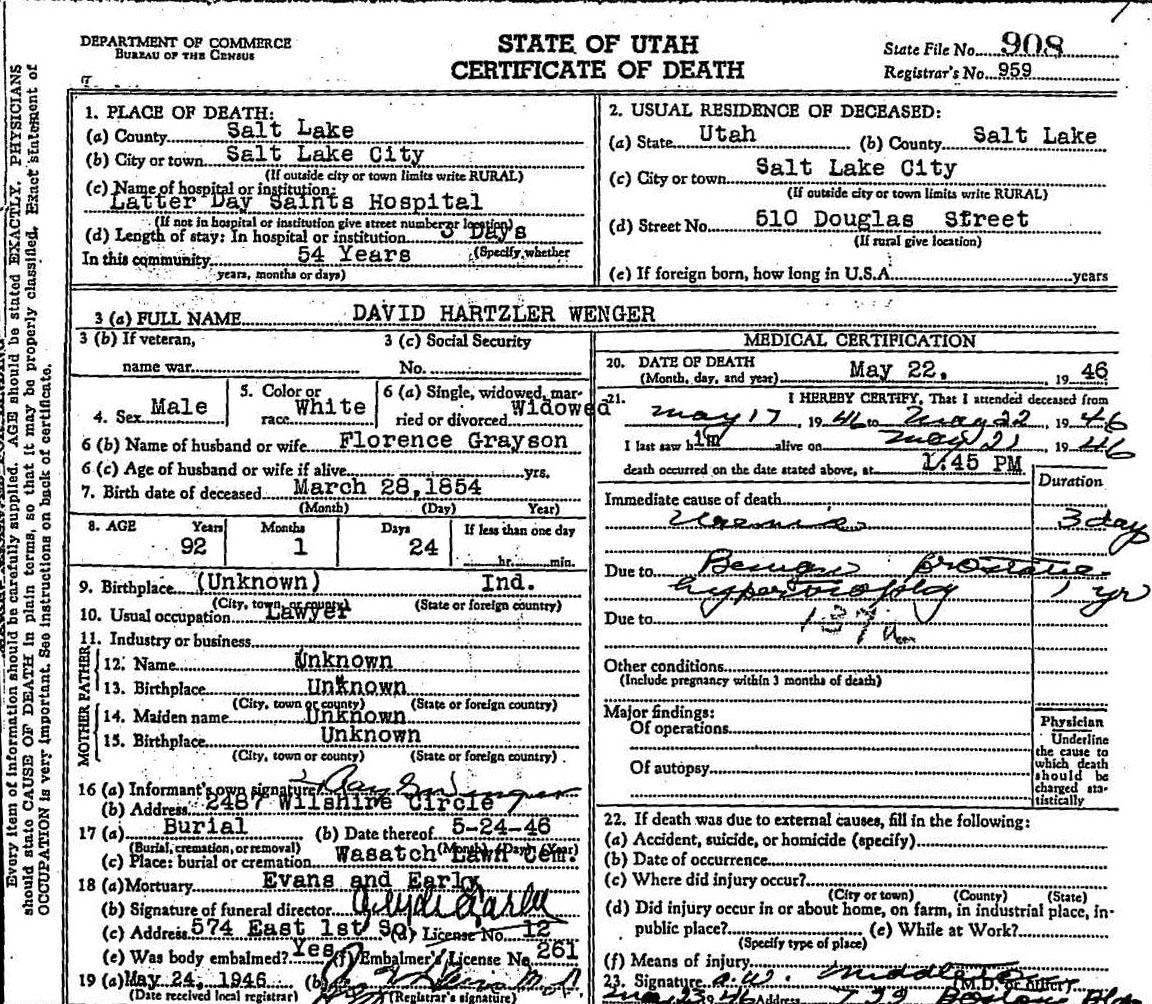 DEPARTMENT OF COMMERCE
BUREAU OF THE CENSUS
STATE OF UTAH
CERTIFICATE OF DEATH
State File No. 908
Registrar's No. 959
Every item of information should be carefully supplied. AGE should be stated EXACTLY. PHYSICIANS
should state CAUSE OF DEATH in plain terms, so that it may be properly classified. Exact statement of
OCCUPATION is very important. See instructions on back of certificate.
1. PLACE OF DEATH:
(a) County Salt Lake
(b) City or town Salt Lake City
(If outside city or town limits write RURAL)
(c) Name of hospital or institution:
Latter Day Saints Hospital
(If not in hospital or institution give street number or location)
(d) Length of stay: In hospital or institution 3 Days
(Specify whether
In this community 54 Years
years, months or days)
2. USUAL RESIDENCE OF DECEASED:
(a) State Utah (b) County Salt Lake
(c) City or town Salt Lake City
(If outside city or town limits write RURAL)
(d) Street No. 510 Douglas Street
(If rural give location)
(e) If foreign born, how long in U.S.A. years
3 (a) FULL NAME DAVID HARTZLER WENGER
3 (b) If veteran,
name war
3 (c) Social Security
No.
4. Sex Male
5. Color or
race White
6 (a) Single, widowed, mar-
ried or divorced Widowed
6 (b) Name of husband or wife Florence Grayson
6 (c) Age of husband or wife if alive yrs.
7. Birth date of deceased March 28,1854
(Month) (Day) Year)
8. AGE Years Months Days If less than one day
92 1 24 hr. min.
9. Birthplace (Unknown) Ind.
(City, town or county) (State or foreign country)
10. Usual occupation Lawyer
11. Industry or business
FATHER
12. Name Unknown
13. Birthplace Unknown
(City, town or county) (State or foreign country)
MOTHER
14. Maiden name Unknown
15. Birthplace Unknown
(City, town or county) (State or foreign country)
16 (a) Informant's own signature
(b) Address 2487 Wilshire Circle
17 (a) Burial (b) Date thereof 5-24-46
(Burial, cremation, or removal) (Month) (Day) (Year)
(c) Place: burial or cremation Wasatch Lawn Cem.
18 (a) Mortuary Evans and Early
(b) Signature of funeral director Clyde Early
(c) Address 574 East 1st So. (d) License No. 12
(e) Was body embalmed? Yes (f) Embalmer's License No. 261
19 (a) May 24, 1946 (b)
(Date received local registrar) (Registrar's signature)
MEDICAL CERTIFICATION
20. DATE OF DEATH
(Month, day, and year) May 22, 19 46
21. I HEREBY CERTIFY, That I attended deceased from
May 17, 19 46 to May 22, 19 46
I last saw him alive on May 21 19 46
death occurred on the date stated above, at 1:45 PM
Duration
Immediate cause of death
Uremia 3 day
Due to Benign prostatic
hypertrophy 1 yr
Due to
Other conditions
(Include pregnancy within 3 months of death)
Major findings:
Of operations
Of autopsy
Physician
Underline
the cause to
which death
should be
charged sta-
tistically
22. If death was due to external causes, fill in the following:
(a) Accident, suicide, or homicide (specify)
(b) Date of occurrence
(c) Where did injury occur?
(City or town) (County) (State)
(d) Did injury occur in or about home, on farm, in industrial place, in-
public place? (e) While at Work?
(Specify type of place)
(f) Means of injury
23. Signature A.W. Middleton (M.D. or other)
May 23 1946 Address 722